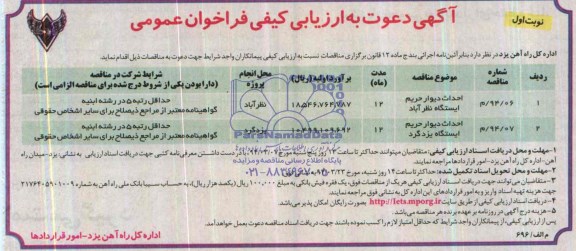 نوبت اول
آگهی دعوت به ارزیابی کیفی فراخوان عمومی
اداره کل راه آهن یزد در نظر دارد بنابر آئین نامه اجرائی بند ج ماده ۱۲ قانون برگزاری مناقصات نسبت به ارزیابی کیفی پیمانکاران واجد شرایط جهت دعوت به مناقصات ذیل اقدام نماید.
ردیف
شماره مناقصه
موضوع مناقصه
مدت (ماه)
برآورد اولیه (ریال)
محل انجام پروژه
شرایط شرکت در مناقصه (دارا بودن یکی از شروط درج شده برای مناقصه الزامی است)
۱
۹۴/۰۶/م
احداث دیوار حریم ایستگاه نظرآباد
۱۲
نظرآباد
حداقل رتبه ۵ در رشته ابنیه
گواهینامه معتبر از مراجع ذیصلاح برای سایر اشخاص حقوقی
۲
۹۴/۰۷/م
احداث دیوار حریم ایستگاه یزدگرد
۱۲
یزدگرد
حداقل رتبه ۵ در رشته ابنیه
گواهینامه معتبر از مراجع ذیصلاح برای سایر اشخاص حقوقی
ParsNamadData
پایگاه اطلاع رسانی مناقصه و مزایده
۰۲۱-۸۸۳۴۹۶۷۰
۱-مهلت و محل دریافت اسناد ارزیابی کیفی: متقاضیان میتوانند حداکثر تا ساعت ۱۴ روز پنج شنبه مورخ با در دست داشتن معرفی نامه کتبی جهت دریافت اسناد ارزیابی به نشانی یزد- میدان راه آهن-اداره کل راه آهن یزد-امور قراردادها مراجعه نمایند.
۲-مهلت و محل تحویل اسناد تکمیل شده: حداکثر تا ساعت ۱۴ روز شنبه، مورخ
۳- متقاضیان می توانند جهت دریافت اسناد ارزیابی کیفی هریک از مناقصات فوق، یک فقره فیش بانکی به مبلغ ۱۰۰,۰۰۰ ریال (یکصد هزار ریال)، به حساب سیبا بانک ملی راه آهن به شماره ۲۱۷۶۴۰۵۹۰۱۰۰۹ جهت هزینه تهیه اسناد واریز و به امور قراردادهای این اداره کل به نشانی فوق مراجعه نمایند.
۴- دریافت اسناد ارزیابی کیفی از طریق سایت http://iets.mporg.ir بصورت رایگان امکان پذیر می باشد.
۵- هزینه درج آگهی در روزنامه بر عهده برنده هر مناقصه می باشد.
پس از ارزیابی کیفی، از پیمانکاران واجد شرایط که حداقل امتیاز لازم را کسب نموده باشند جهت دریافت اسناد مناقصه دعوت بعمل خواهد آمد.
م الف / ۶۹۶
اداره کل راه آهن یزد- امور قراردادها